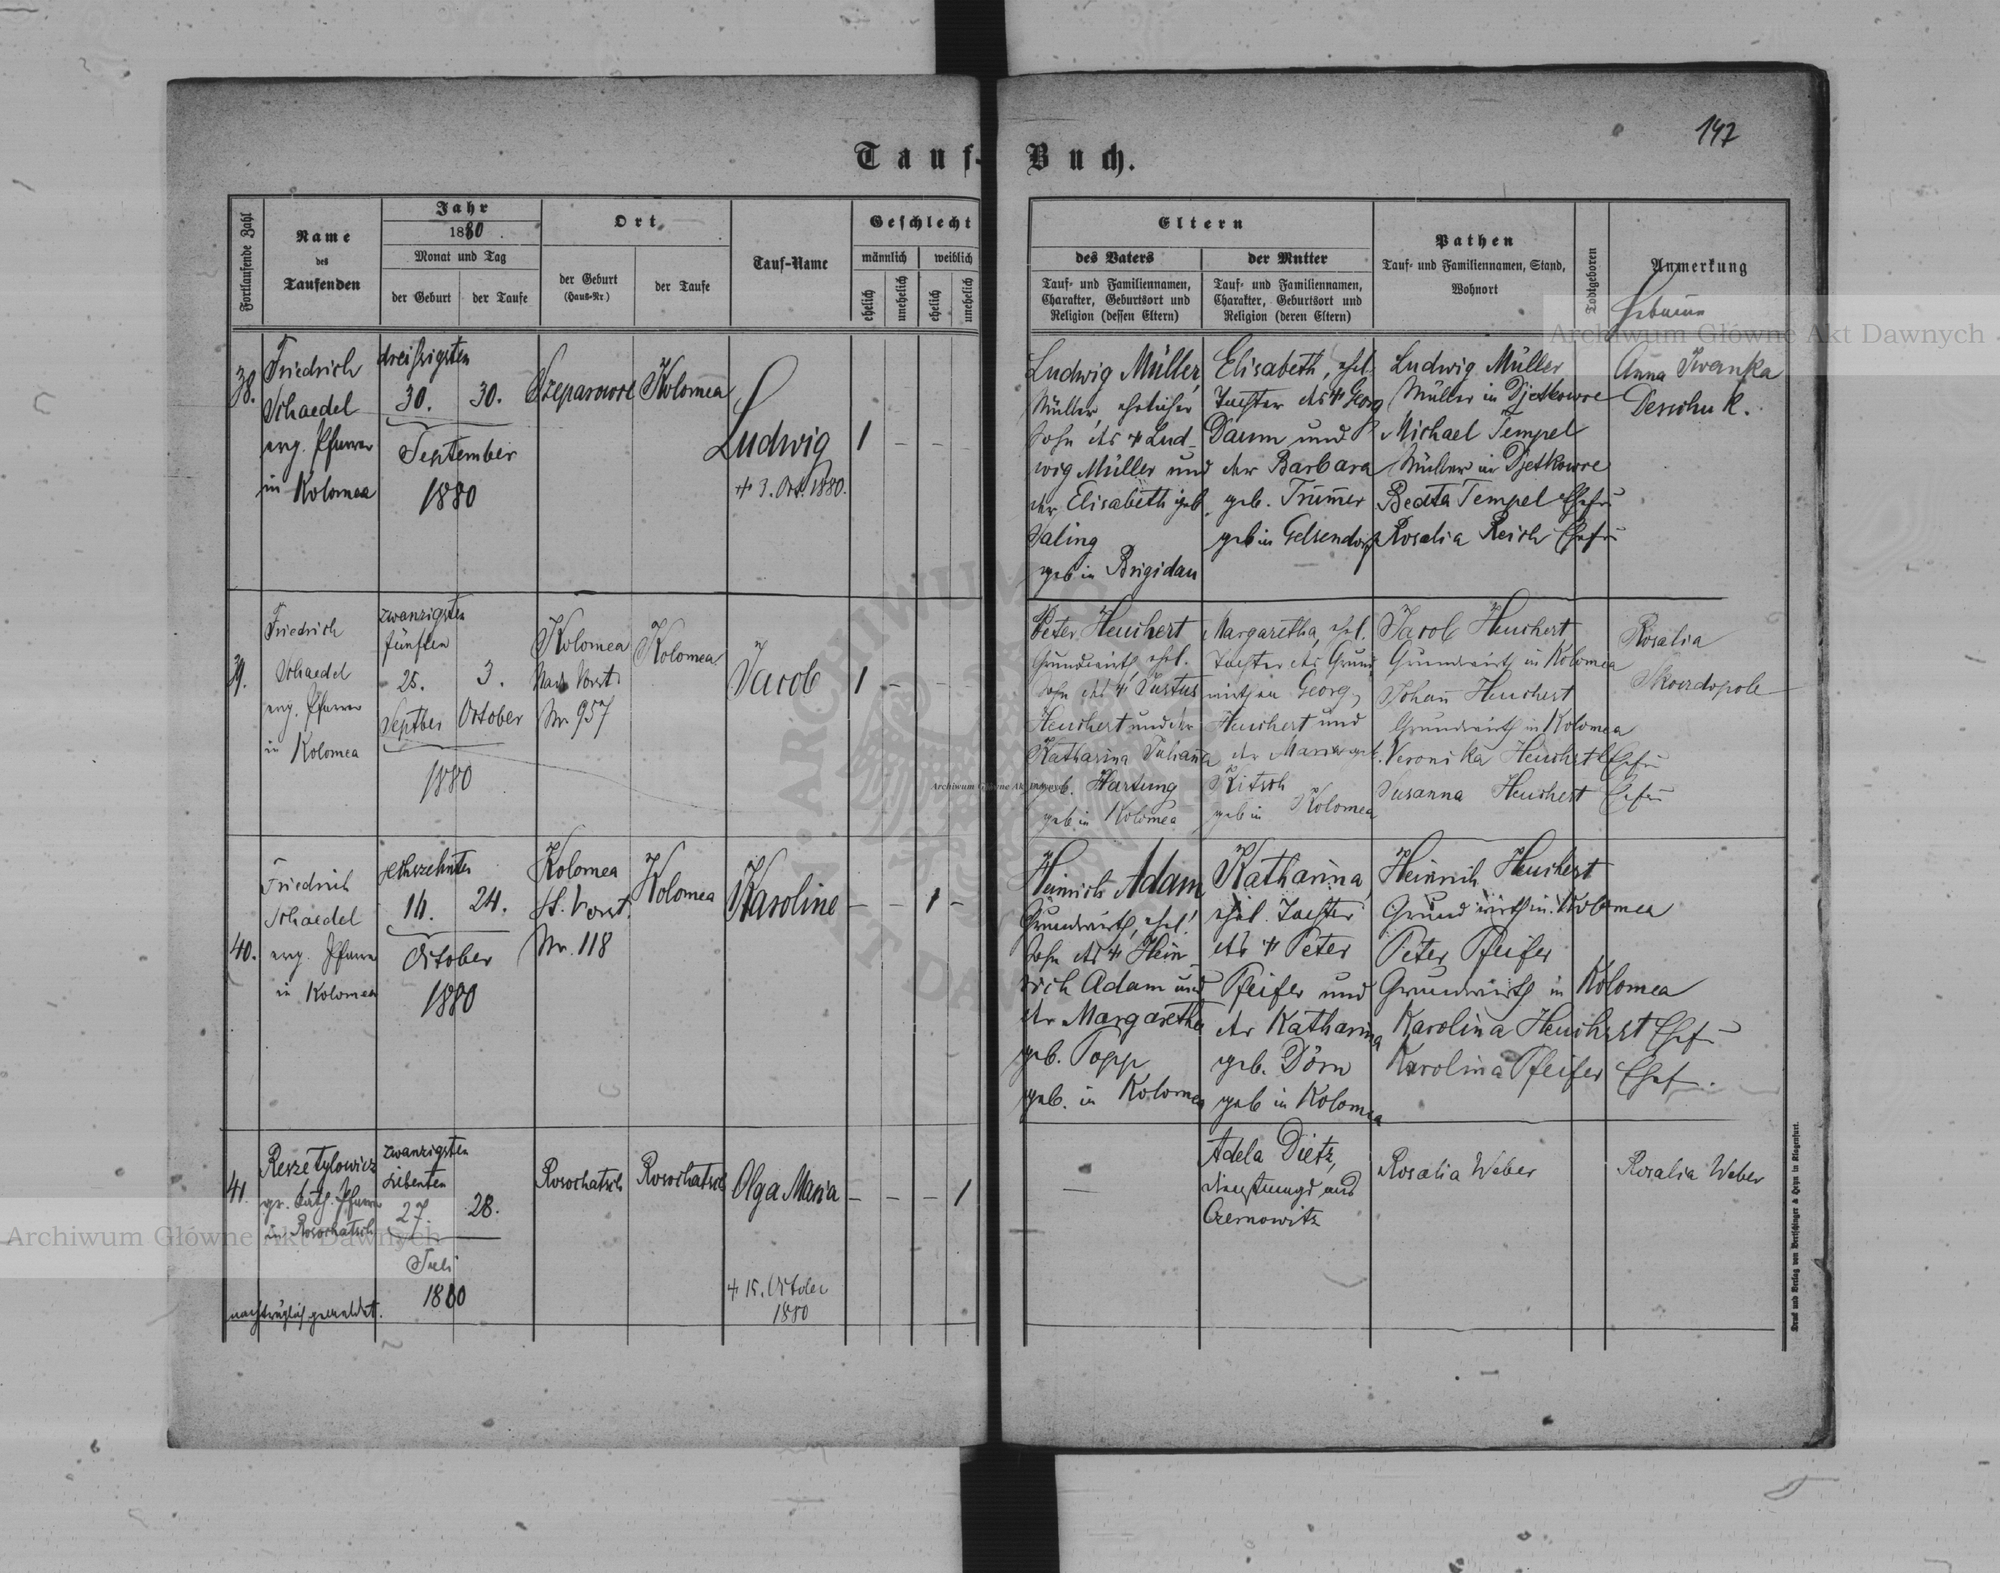 147
Tauf-Buch.
Fortlaufende Zahl
Name
des
Taufenden
Jahr
1880.
Monat und Tag
der Geburt
der Taufe
Ort
der Geburt
(Haus-Nr.)
der Taufe
Tauf-Name
Geschlecht
männlich
weiblich
ehelich
unehelich
ehelich
unehelich
Eltern
des Vaters
Tauf- und Familiennamen,
Charakter, Geburtsort und
Religion (dessen Eltern)
der Mutter
Tauf- und Familiennamen,
Charakter, Geburtsort und
Religion (deren Eltern)
Pathen
Tauf- und Familiennamen, Stand,
Wohnort
Todtgeboren
Anmerkung
Hebamme
38.
Friedrich
Schaedel
evg. Pfarrer
in Kolomea
dreißigsten
30.
30.
September
1880
Szeparowce
Kolomea
Ludwig
+ 3. Oct. 1880.
1 – –
Ludwig Müller,
Müller, ehelicher
Sohn des + Lud-
wig Müller und
der Elisabeth geb.
Saling
geb in Brigidau
Elisabeth, ehel.
Tochter des + Georg
Daum und
der Barbara
geb. Trumer
geb in Gelsendorf
Ludwig Müller
Müller in Djetkowce
Michael Tempel
Müller in Djetkowce
Beata Tempel Ehefr
Rosalia Reich Ehefr
Anna Iwanka
Deschuk.
39.
Friedrich
Schaedel
evg. Pfarrer
in Kolomea
zwanzigsten
fünften
25.
3.
Septber
October
1880
Kolomea
Vorst.
Nr. 957
Kolomea
Jacob
1 – –
Peter Heuchert
Grundwirth, ehel.
Sohn des + Justus
Heuchert und der
Katharina Juliana
geb. Hartung
geb in Kolomea
Margaretha, ehel.
Tochter des Grund
wirthen Georg
Heuchert und
der Maria geb.
Kitsch
geb in Kolomea
Jacob Heuchert
Grundwirth in Kolomea
Johan Heuchert
Grundwirth in Kolomea
Veronika Heuchert Ehefr
Susanna Heuchert Ehefr
Rosalia
Skowdopole
40.
Friedrich
Schaedel
evg. Pfarrer
in Kolomea
sechszehnten
16.
24.
October
1880
Kolomea
St. Vorst.
Nr. 118
Kolomea
Karoline
– – 1 –
Heinrich Adam
Grundwirth, ehel.
Sohn des + Hein-
rich Adam und
der Margaretha
geb. Popp
geb. in Kolomea
Katharina,
ehel. Tochter
des + Peter
Pfeifer und
der Katharina
geb. Dörn
geb in Kolomea
Heinrich Heuchert
Grundwirth in Kolomea
Peter Pfeifer
Grundwirth in Kolomea
Karolina Heuchert Ehefr
Karolina Pfeifer Ehef.
41.
Reszetylowicz
gr. kath. Pfarrer
in Rosochatsch
zwanzigsten
siebenten
27.
28.
Juli
1880
nachträglich gemeldet.
Rosochatsch
Rosochatsch
Olga Maria
+ 15. October
1880
– – – 1
—
Adela Dietz,
Dienstmagd aus
Czernowitz
Rosalia Weber
Rosalia Weber
Druck und Verlag von Bertschinger & Heyn in Klagenfurt.
Archiwum Główne Akt Dawnych
Archiwum Główne Akt Dawnych
Archiwum Główne Akt Dawnych